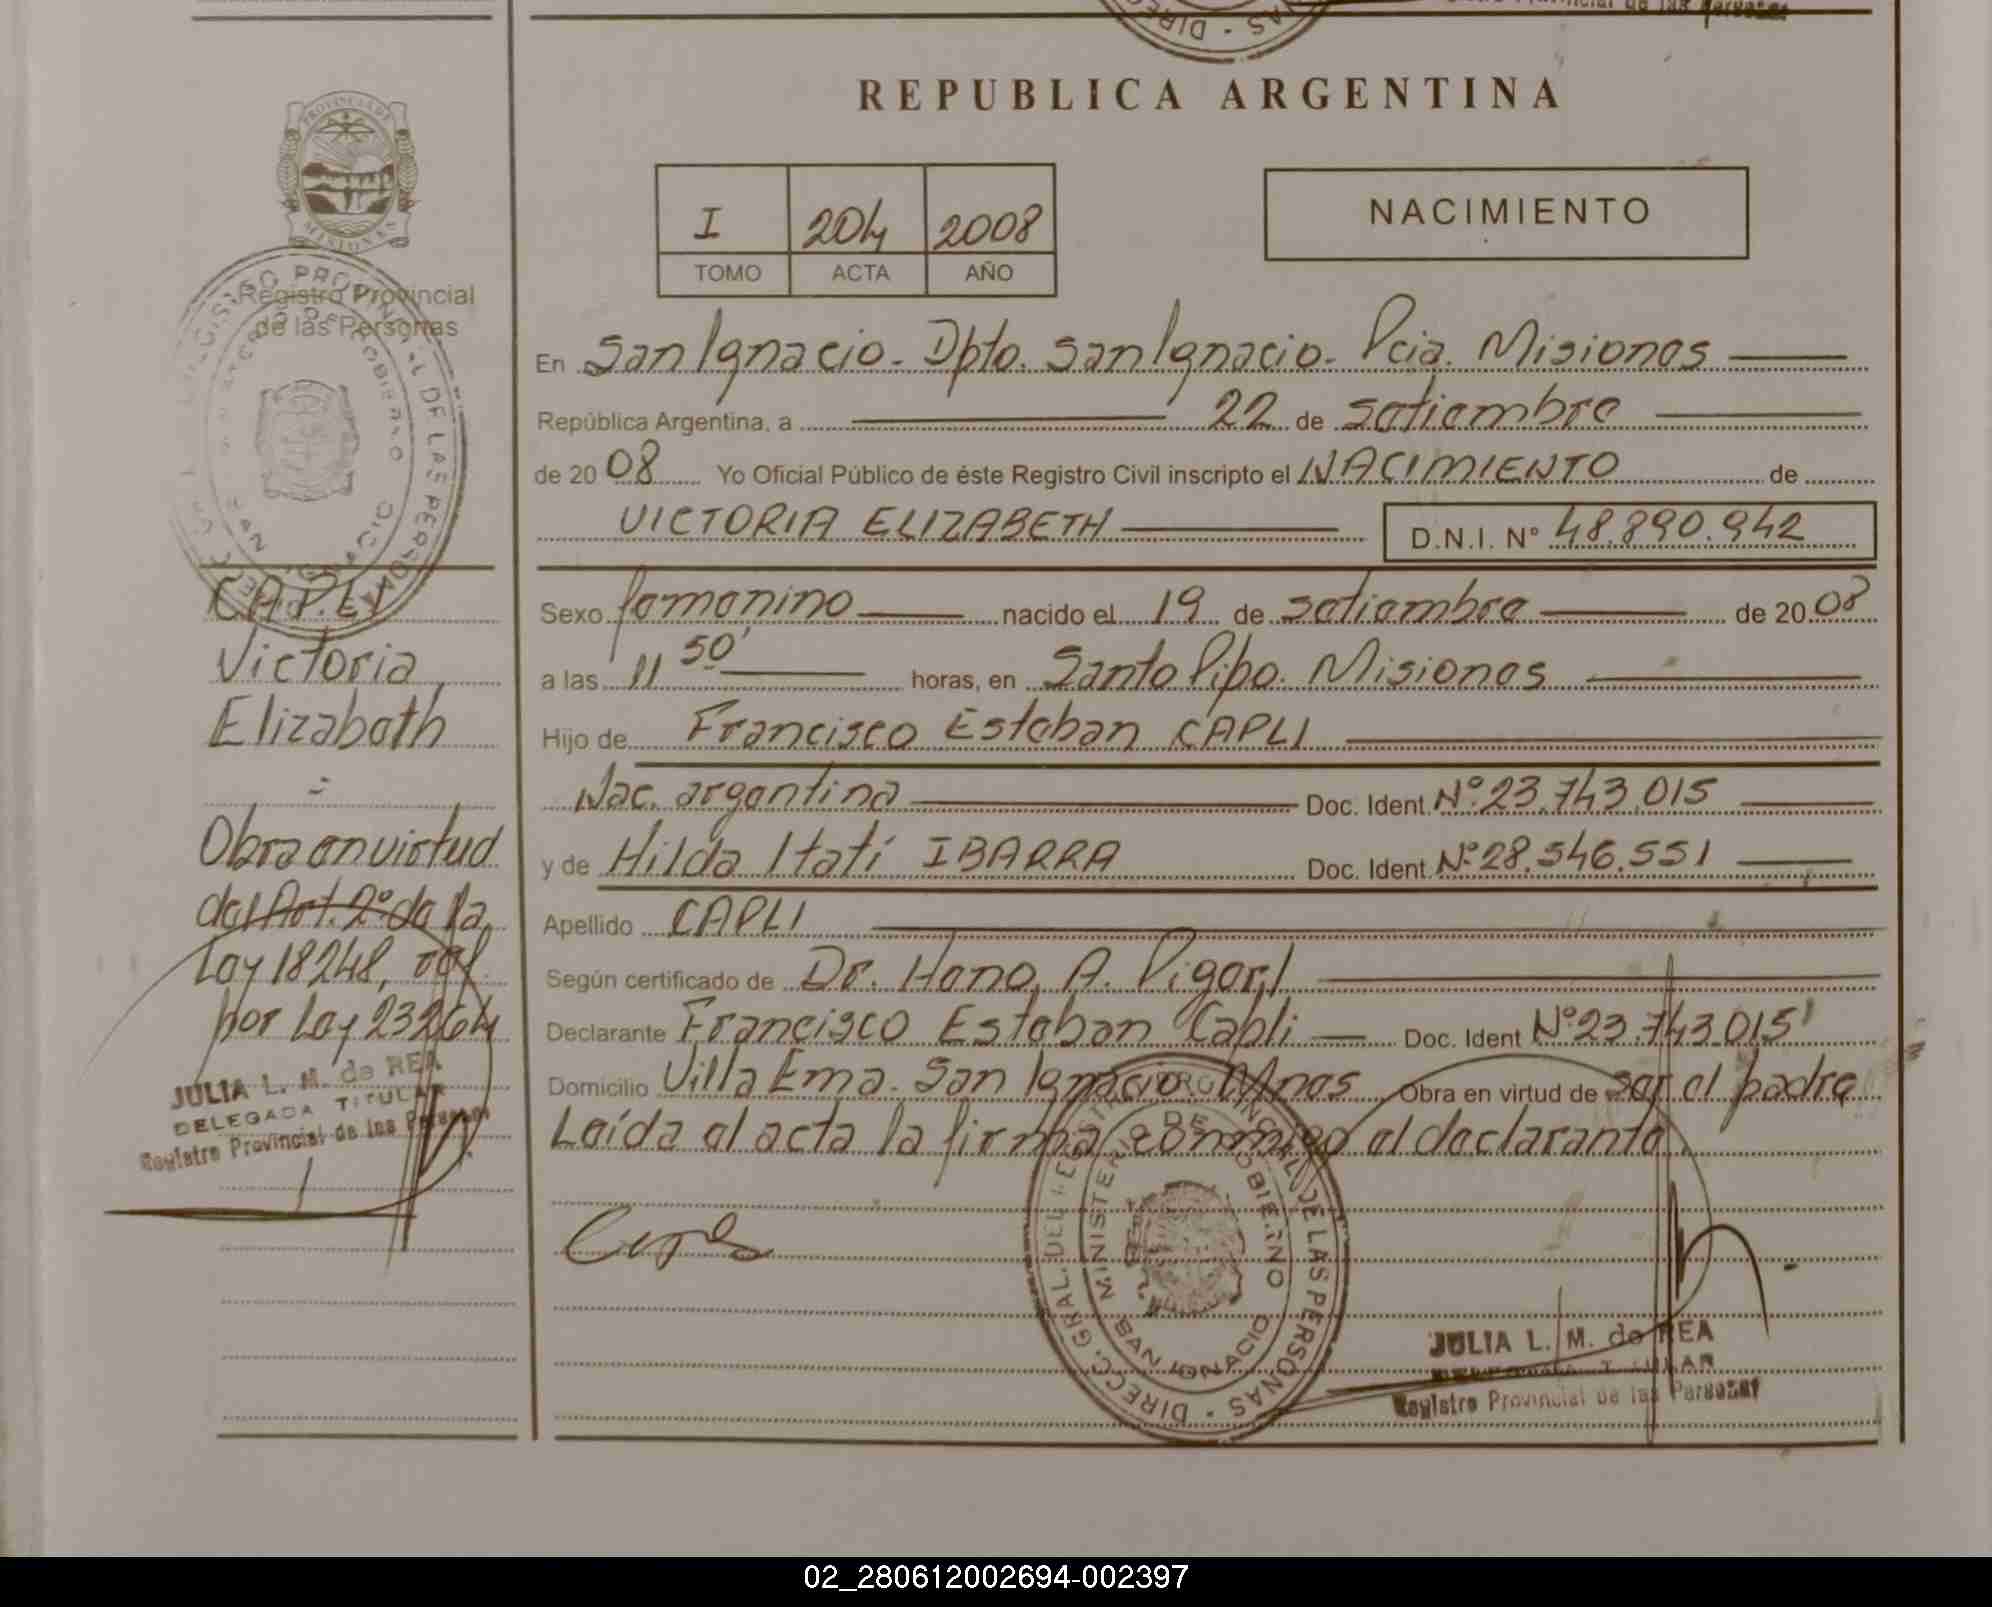 Provincial de las Personas
DIREC
REPUBLICA ARGENTINA
PROVINCIA DE
MISIONES
Registro Provincial
de las Personas
I 204 2008
TOMO ACTA AÑO
NACIMIENTO
En San Ignacio - Dpto. San Ignacio - Pcia. Misiones
República Argentina, a 22 de setiembre
de 2008 Yo Oficial Público de éste Registro Civil inscripto el NACIMIENTO de
VICTORIA ELIZABETH D.N.I. Nº 48.890.942
Sexo femenino nacido el 19 de setiembre de 2008
a las 11 50' horas, en Santo Pipo. Misiones
Hijo de Francisco Esteban CAPLI
Nac. argentina Doc. Ident. Nº 23.743.015
y de Hilda Itatí IBARRA Doc. Ident. Nº 28.546.551
Apellido CAPLI
Según certificado de Dr. Hano. A.
Declarante Francisco Esteban Capli Doc. Ident Nº 23.743.015
Domicilio Villa Ema. San Ignacio Mnes Obra en virtud de ser el padre
Leída el acta la firma conmigo el declarante
CAPLI
Victoria
Elizabeth
Obra en virtud
del Art. 2º de la
Ley 18248,
por Ley 23264
JULIA L. M. de REA
DELEGADA TITULAR
Registro Provincial de las Personas
DIREC. GRAL. DEL REGISTRO PROVINCIAL DE LAS PERSONAS
MINISTERIO DE GOBIERNO
SAN IGNACIO
JULIA L. M. de REA
DELEGADA TITULAR
Registro Provincial de las Personas
02_280612002694-002397